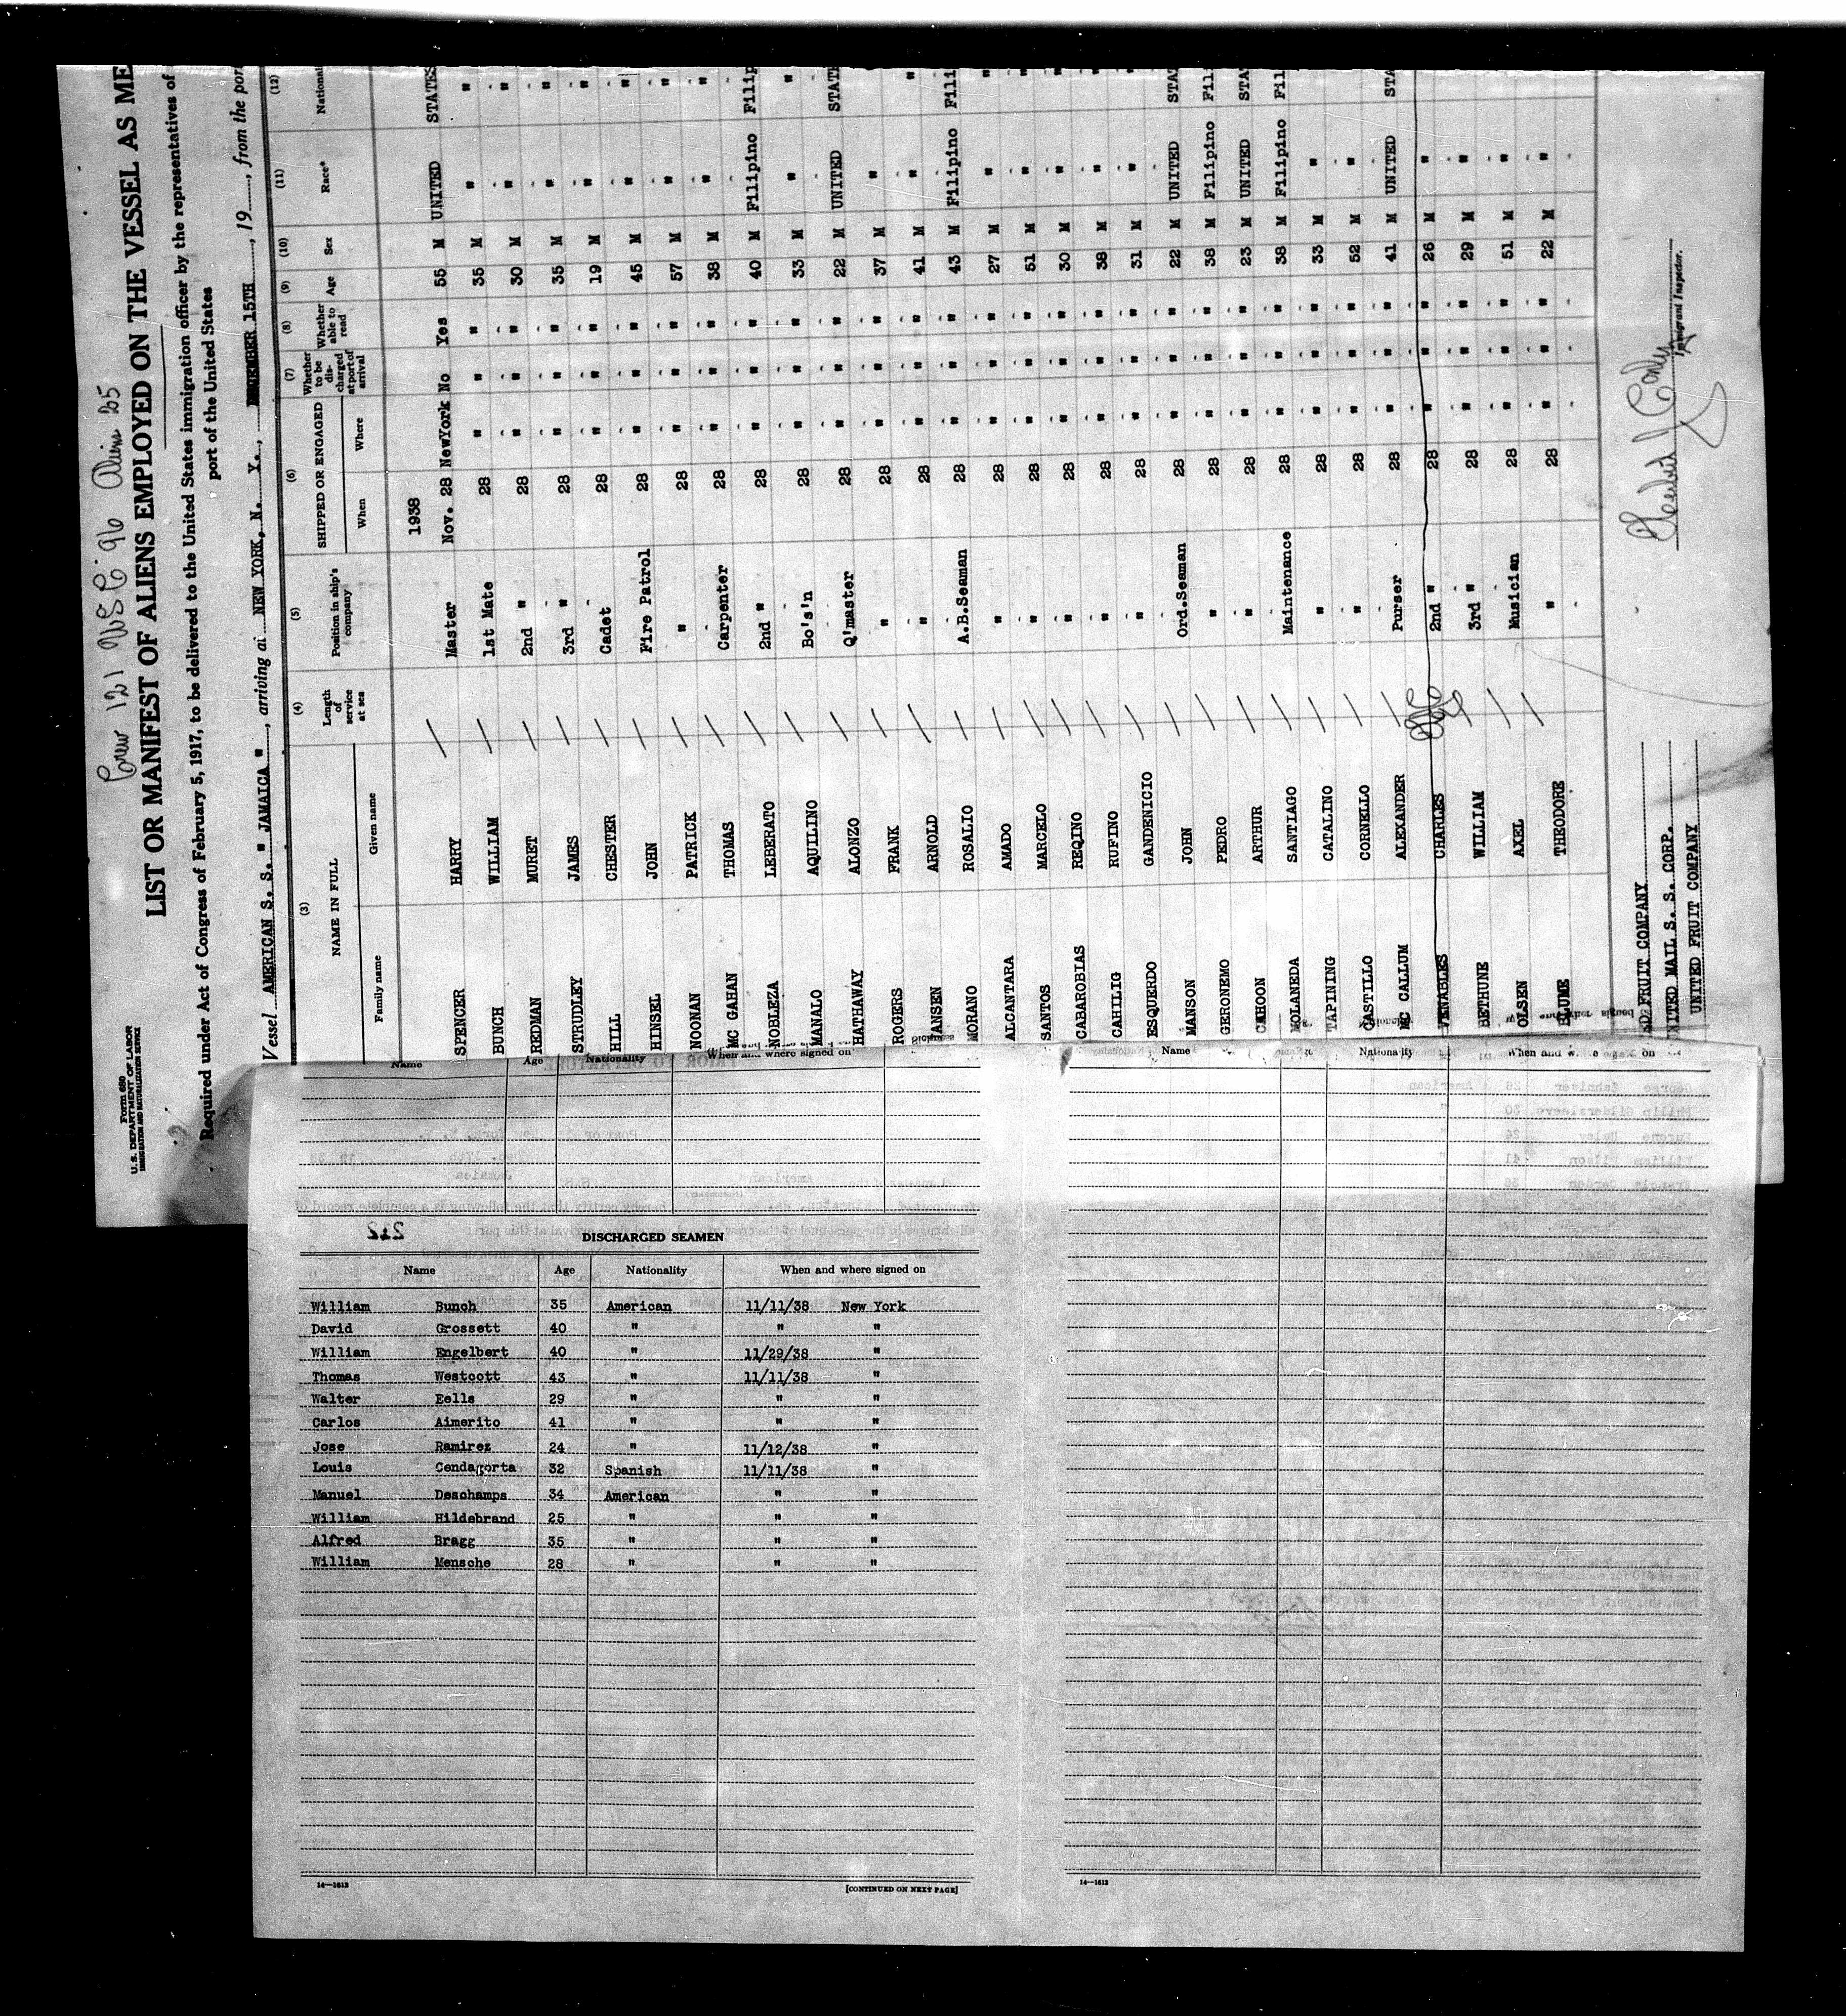 Crew 121 USC 96 Aliens 25
Form 680
U.S. DEPARTMENT OF LABOR
IMMIGRATION AND NATURALIZATION SERVICE
LIST OR MANIFEST OF ALIENS EMPLOYED ON THE VESSEL AS ME
Required under Act of Congress of February 5, 1917, to be delivered to the United States immigration officer by the representatives of
port of the United States
Vessel AMERICAN S. S. " JAMAICA ", arriving at NEW YORK, N. Y., DECEMBER 15TH, 19, from the por
(3) (4) (5) (6) (7) (8) (9) (10) (11) (12)
NAME IN FULL Length of service at sea Position in ship's company SHIPPED OR ENGAGED Whether to be discharged at port of arrival Whether able to read Age Sex Race* National
Family name Given name When Where
1938
SPENCER HARRY Master Nov. 28 NewYork No Yes 55 M UNITED STATES
BUNCH WILLIAM 1st Mate 28 " " " 35 M " "
REDMAN MURET 2nd " 28 " " " 30 M " "
STRUDLEY JAMES 3rd " 28 " " " 35 M " "
HILL CHESTER Cadet 28 " " " 19 M " "
HINSEL JOHN Fire Patrol 28 " " " 45 M " "
NOONAN PATRICK " 28 " " " 57 M " "
MC GAHAN THOMAS Carpenter 28 " " " 38 M " "
NOBLEZA LEBERATO 2nd " 28 " " " 40 M Filipino Filip
MANALO AQUILINO Bo's'n 28 " " " 33 M " "
HATHAWAY ALONZO Q'master 28 " " " 22 M UNITED STATE
ROGERS FRANK " 28 " " " 37 M "
HANSEN ARNOLD " 28 " " " 41 M " "
MORANO ROSALIO A.B.Seaman 28 " " " 43 M Filipino Fili
ALCANTARA AMADO " 28 " " " 27 M " "
SANTOS MARCELO " 28 " " " 51 M " "
CABAROBIAS REQINO " 28 " " " 30 M " "
CAHILIG RUFINO " 28 " " " 38 M " "
ESQUERDO GANDENICIO " 28 " " " 31 M " "
MANSON JOHN Ord.Seaman 28 " " " 22 M UNITED STAT
GERONEMO PEDRO " 28 " " " 38 M Filipino Fili
CAHOON ARTHUR " 28 " " " 23 M UNITED STA
MOLANEDA SANTIAGO Maintenance 28 " " " 38 M Filipino Fil
TAPINING CATALINO " 28 " " " 33 M "
CASTILLO CORNELLO " 28 " " " 52 M "
MC CALLUM ALEXANDER Purser 28 " " " 41 M UNITED STA
VENABLES CHARLES 2nd " 28 " " " 26 M "
BETHUNE WILLIAM 3rd " 28 " " " 29 M "
OLSEN AXEL Musician 28 " " " 51 M "
BLUME THEODORE " 28 " " " 22 M "
ED FRUIT COMPANY
NITED MAIL S. S. CORP.
UNITED FRUIT COMPANY
Immigrant Inspector.
Name Age Nationality When and where signed on
Name Nationality When and where signed on
212
DISCHARGED SEAMEN
Name Age Nationality When and where signed on
William Bunch 35 American 11/11/38 New York
David Grossett 40 " " "
William Engelbert 40 " 11/29/38 "
Thomas Westcott 43 " 11/11/38 "
Walter Eells 29 " " "
Carlos Aimerito 41 " " "
Jose Ramirez 24 " 11/12/38 "
Louis Cendagorta 32 Spanish 11/11/38 "
Manuel Deschamps 34 American " "
William Hildebrand 25 " " "
Alfred Bragg 35 " " "
William Mensche 28 " " "
14—1613
[CONTINUED ON NEXT PAGE]
14—1613